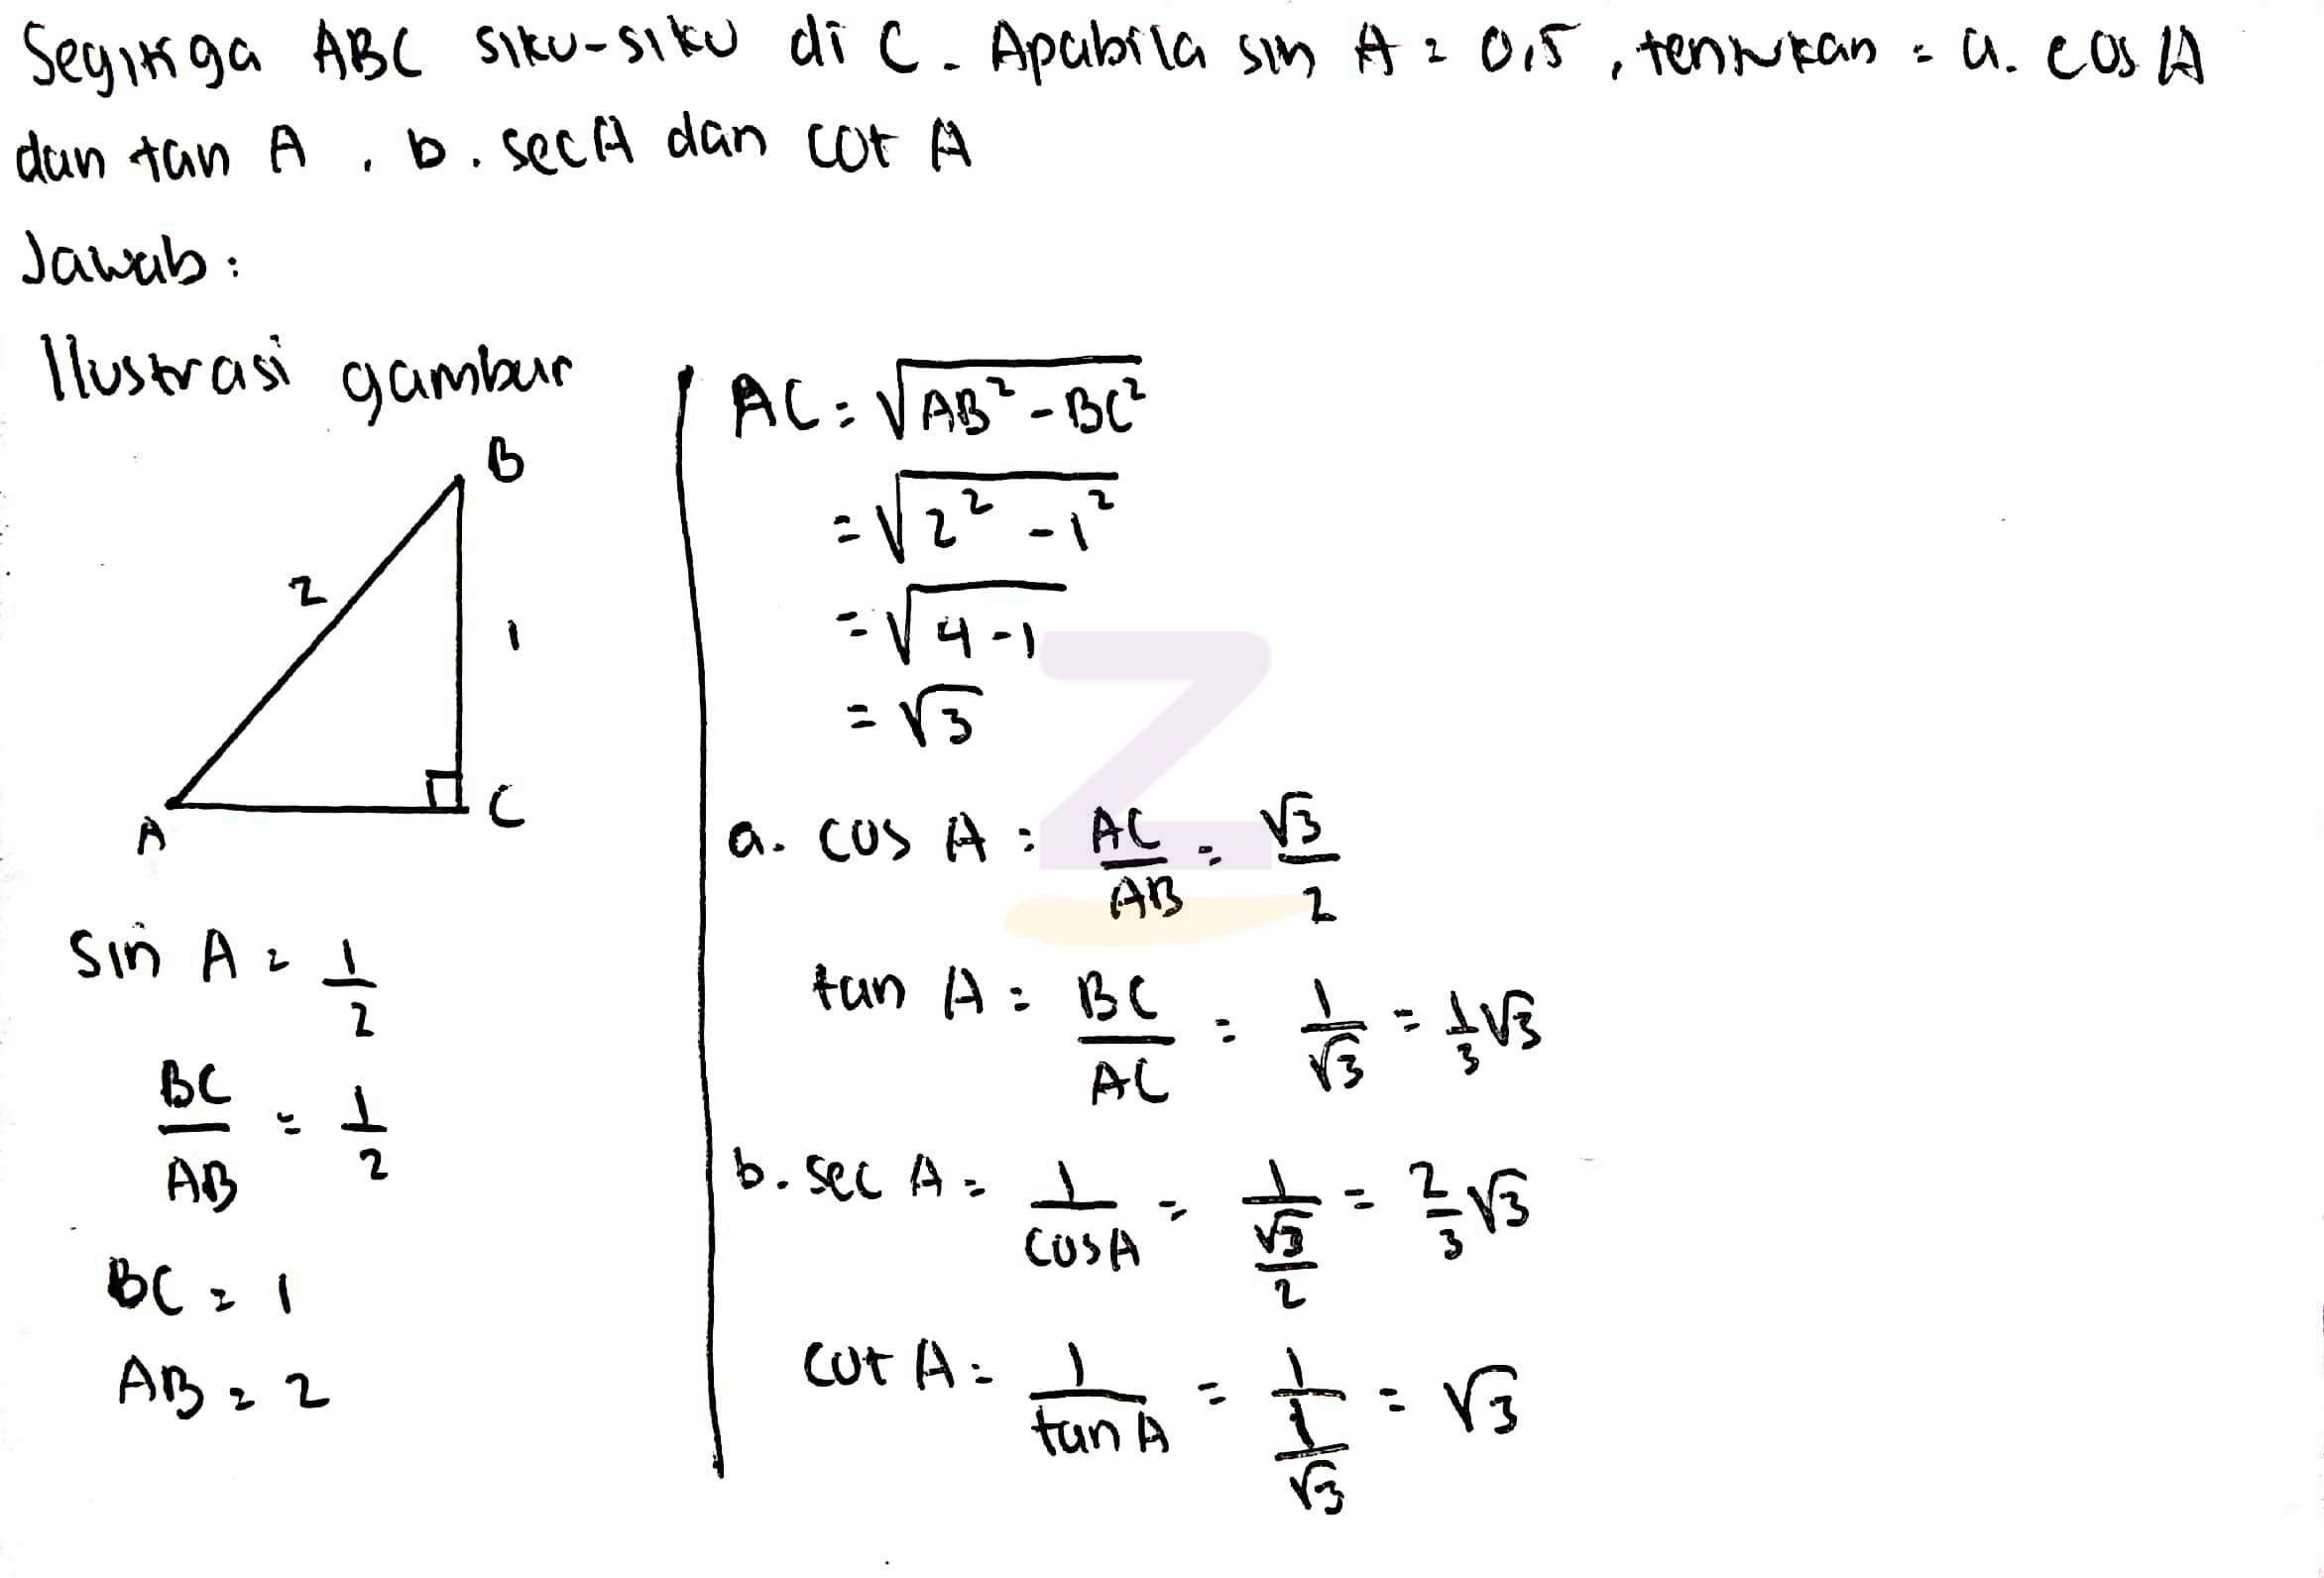 Segitiga ABC siku-siku di C. Apabila sin A = 0,5, tentukan = a. cos A
dan tan A, b. sec A dan cot A
Jawab:
Ilustrasi gambar
B
2
1
A
C
sin A = 1/2
BC/AB = 1/2
BC = 1
AB = 2
AC = √(AB² - BC²)
= √(2² - 1²)
= √(4 - 1)
= √3
a. cos A = AC/AB = √3/2
tan A = BC/AC = 1/√3 = 1/3 √3
b. sec A = 1/cos A = 1/(√3/2) = 2/3 √3
cot A = 1/tan A = 1/(1/√3) = √3